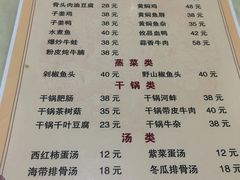 骨头肉油豆腐 28元 黄焖鸡 38元
子姜鸡 38元 黄焖鱼唇 38元
子姜鸭 38元 黄焖鸭 38元
水煮鱼 40元 妆品血鸭 40元
爆炒牛蛙 38元 蒜香牛肉 58元
粉皮炖牛腩 38元
蒸菜类
剁椒鱼头 40元 野山椒鱼头 40元
干锅类
干锅肥肠 38元 干锅河蚌 38元
干锅茶树菇 35元 干锅带皮牛肉 40元
干锅千叶豆腐 23元 干锅牛杂 38元
汤类
西红柿蛋汤 12元 紫菜蛋汤 12元
海带排骨汤 18元 冬瓜排骨汤 18元